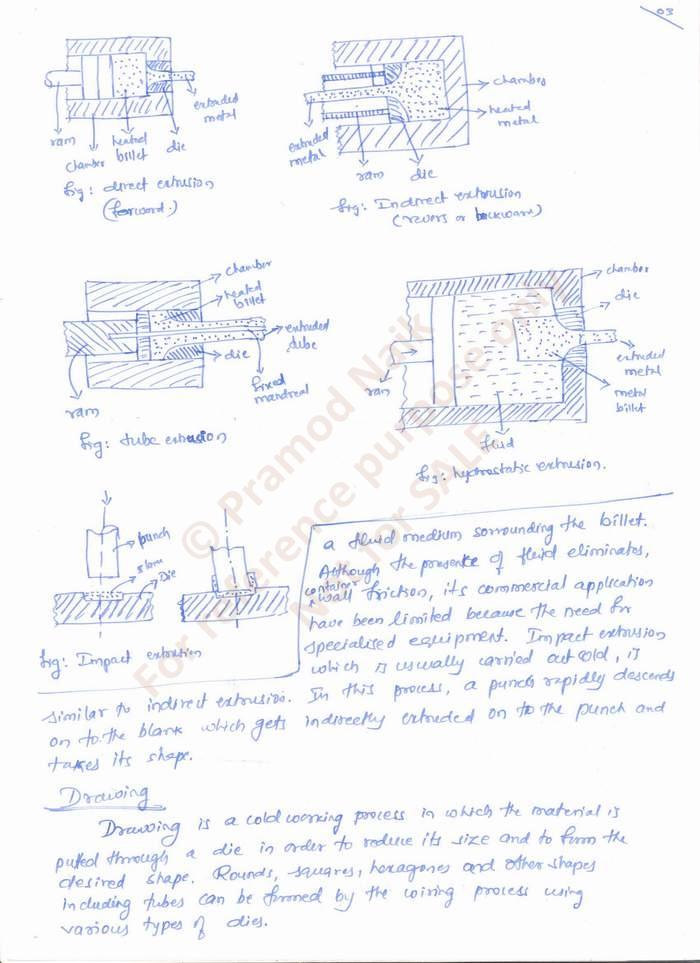 03
extruded
metal
ram
chamber
heated
billet
die
fig: direct extrusion
(forward.)
chamber
heated
metal
extruded
metal
ram
die
fig: Indirect extrusion
(revers or backward)
chamber
heated
billet
extruded
tube
die
fixed
mandreal
ram
fig: tube extrusion
chamber
die
extruded
metal
metal
billet
ram
fluid
fig: hydrostatic extrusion.
punch
Die
fig: Impact extrusion
a fluid medium sorrounding the billet.
Although the presence of fluid eliminates,
container
wall friction, its commercial application
have been limited because the need for
specialised equipment. Impact extrusion
which is usually carried out cold, is
similar to indirect extrusion. In this process, a punch rapidly descends
on to the blank which gets indirectly extruded on to the punch and
takes its shape.
Drawing
Drawing is a cold working process in which the material is
pulled through a die in order to reduce its size and to form the
desired shape. Rounds, squares, hexagones and other shapes
including tubes can be formed by the wiring process using
various types of dies.
© Pramod Naik
For reference purpose only
Not for SALE